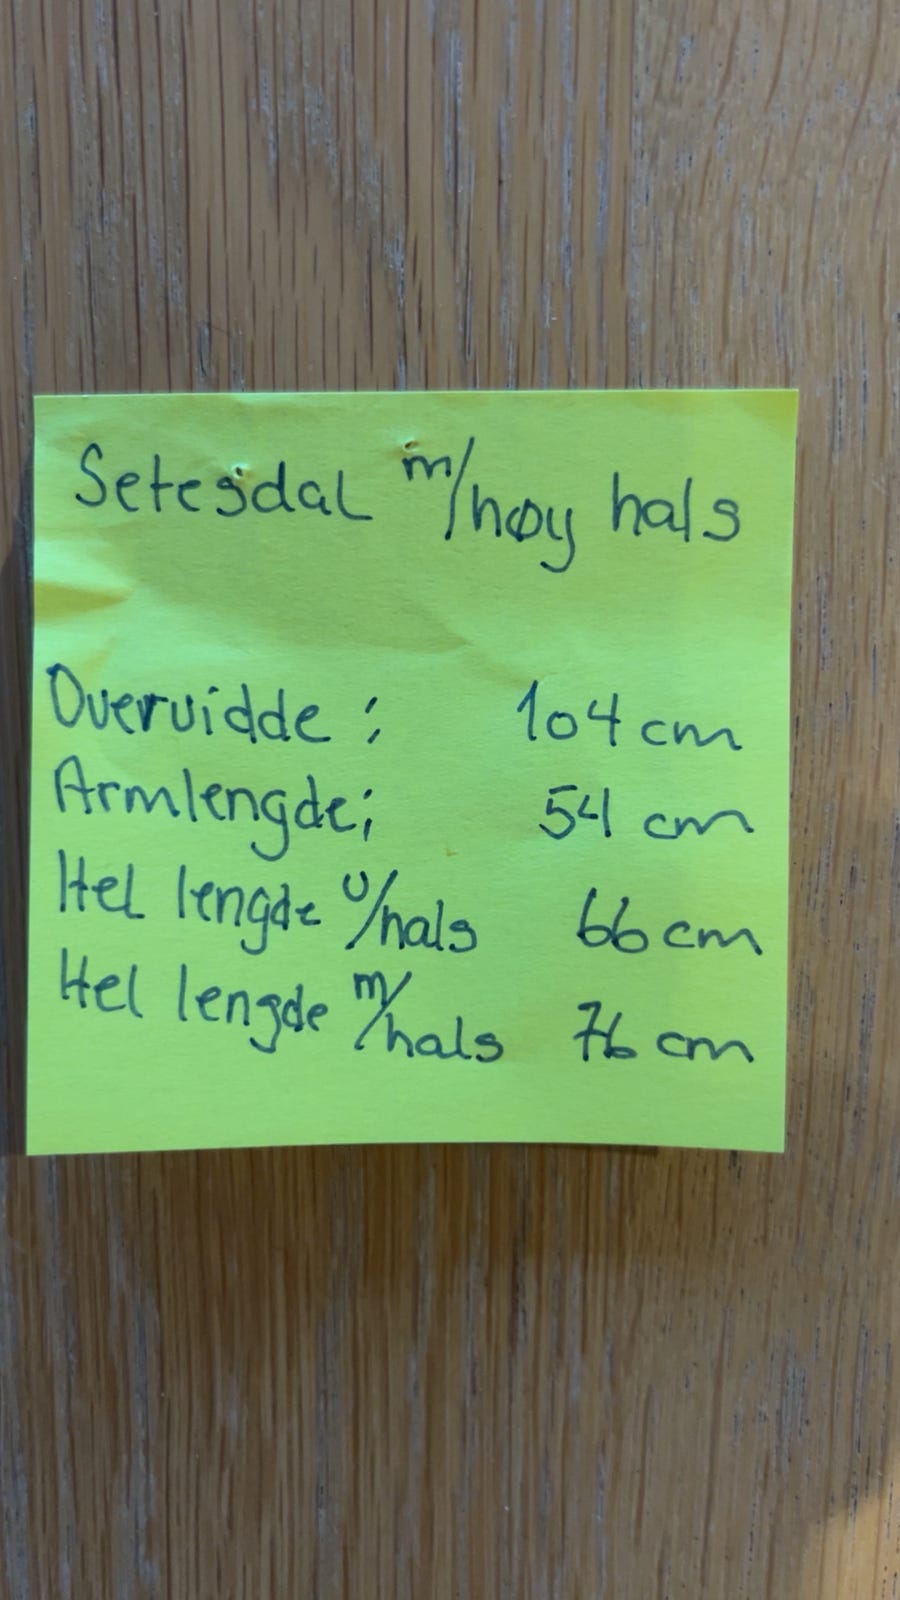 Setesdal m/høy hals
Overvidde: 104 cm
Armlengde: 54 cm
Hel lengde u/hals 66 cm
Hel lengde m/hals 76 cm